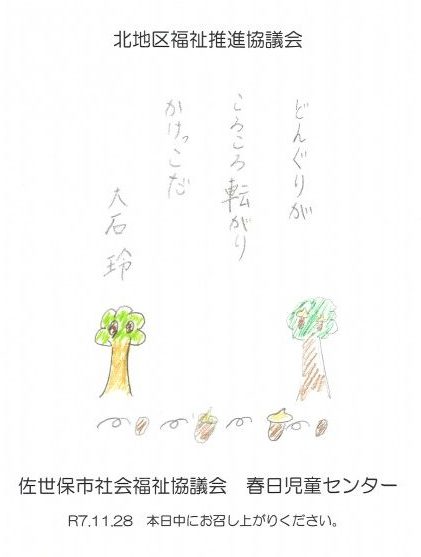 北地区福祉推進協議会
どんぐりが
ころころ転がり
かけっこだ
大石玲
佐世保市社会福祉協議会　春日児童センター
R7.11.28　本日中にお召し上がりください。